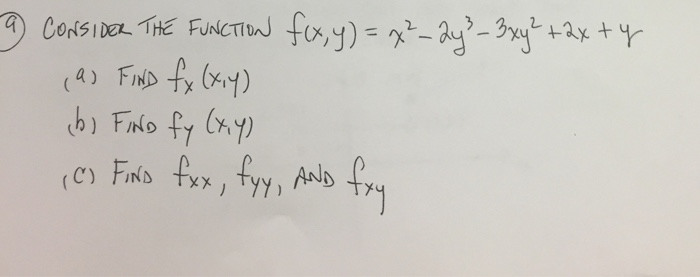 9 CONSIDER THE FUNCTION f(x,y) = x² - 2y³ - 3xy² + 2x + y
(a) FIND fx (x,y)
(b) FIND fy (x,y)
(c) FIND fxx, fyy, AND fxy